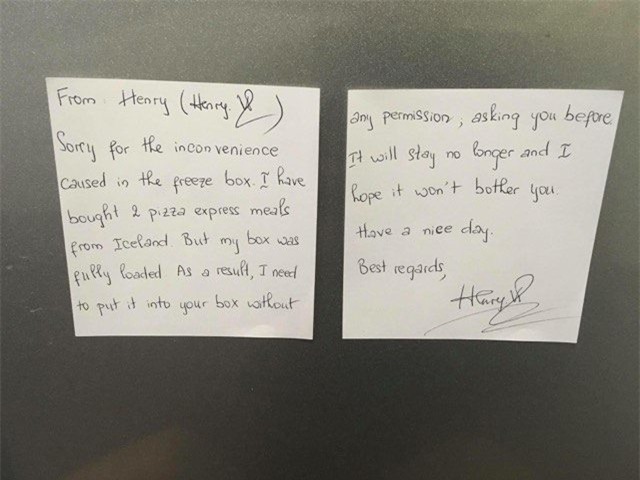 From Henry (Henry. V)
Sorry for the inconvenience
caused in the freeze box. I have
bought 2 pizza express meals
from Iceland. But my box was
fully loaded As a result, I need
to put it into your box without
any permission, asking you before.
It will stay no longer and I
hope it won't bother you.
Have a nice day.
Best regards,
Henry V